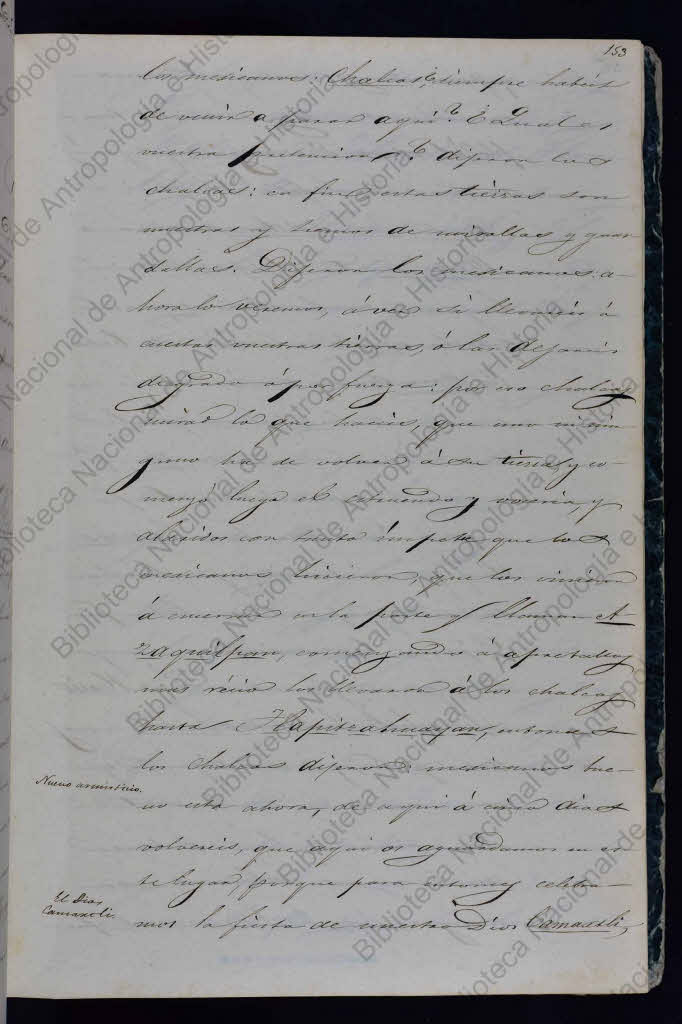 153
los mexicanos: Chalcas, siempre habeis
de venir a parar aqui? Qual es
vuestra pretension? dijeron los
chalcas: en fin estas tierras son
nuestras y hemos de
dallas. Dijeron los mexicanos: a-
hora lo veremos, á ver si llevareis á
cuestas vuestras tierras, ó las dejareis
de grado ó por fuerza: por eso chalcas
mirad lo que haceis, que uno nin-
guno ha de volver á su tierra y co-
menzó luego el estruendo y voceria, y
alaridos con tanto ímpetu que los
mexicanos hicieron, que los
á en la parte q llaman A-
zaquilpan, comenzando á apretalles
mas récio los llevaron á los chalcas
hasta Tlapitzahuayan, entonces
los chalcas dijeron: mexicanos bue-
no esta ahora, de aqui á cinco dias
volvereis, que aqui os aguardamos en es-
te lugar, porque para entonces celebra-
mos la fiesta de nuestro Dios Camaxtli,
Nuevo armisticio.
El Dios
Camaxtli.
Biblioteca Nacional de Antropología e Historia